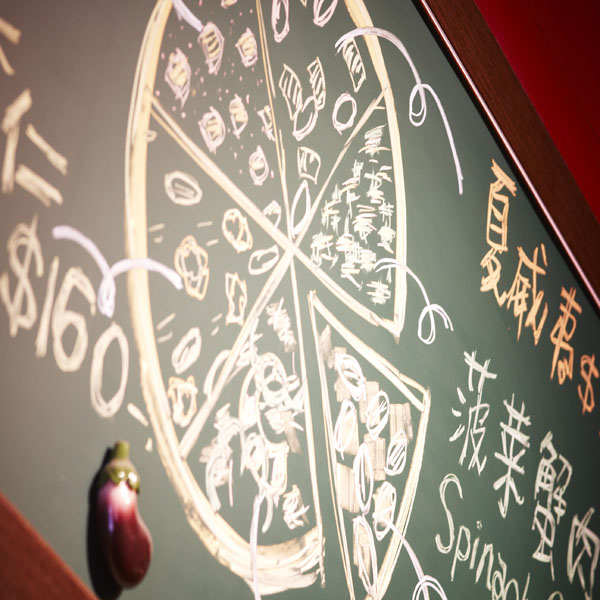 仁
$160
夏威夷$
菠菜蟹肉
Spinach